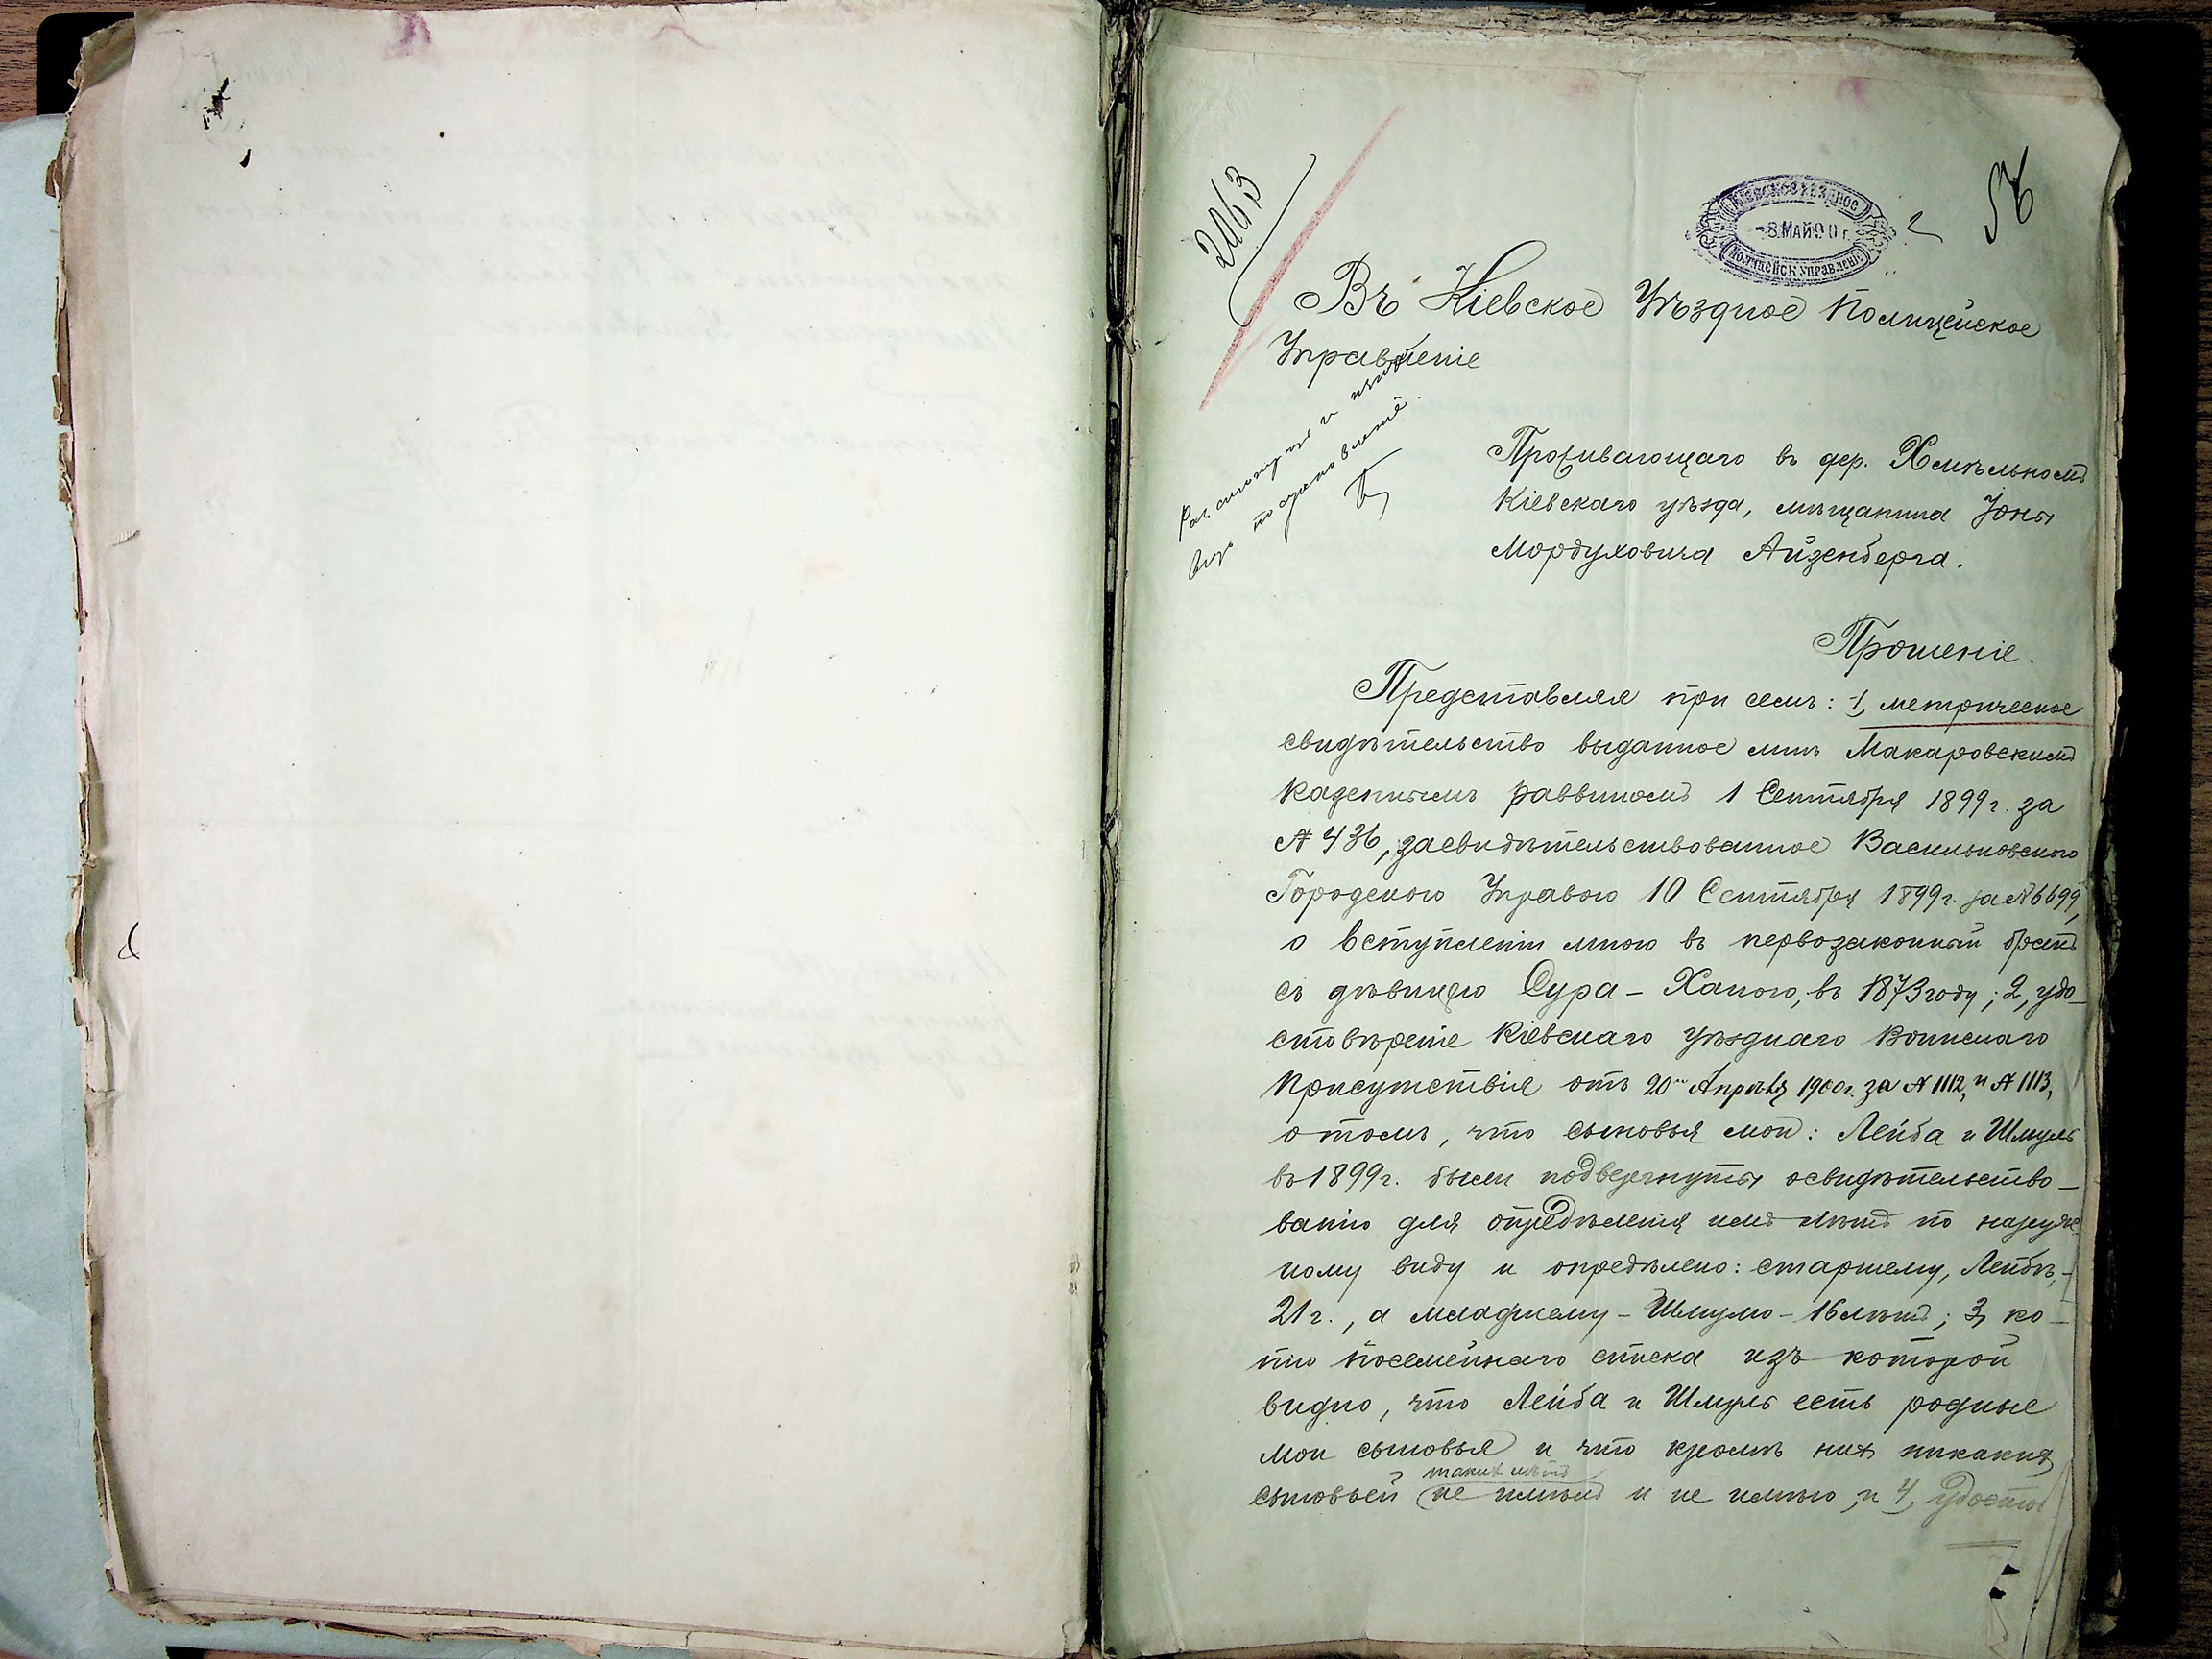 2063
КІЕВСКОЕ УѢЗДНОЕ
8 МАЙ 90 г.
ПОЛИЦЕЙСК. УПРАВЛЕНІЕ
Въ Кіевское Уѣздное Полицейское
Управленіе
Проживающаго въ дер. Хмѣльномъ
Кіевскаго уѣзда, мѣщанина Іоны
Мордуховича Айзенберга.
Прошеніе.
Представляя при семъ: 1, метрическое
свидѣтельство выданное мнѣ Макаровскимъ
казеннымъ раввиномъ 1 Сентября 1899 г. за
№ 436, засвидѣтельствованное Васильковскою
Городскою Управою 10 Сентября 1899 г. за № 6699,
о вступленіи мною въ первозаконный бракъ
съ дѣвицею Сура-Ханою, въ 1873 году; 2, удо-
стовѣреніе Кіевскаго уѣзднаго Воинскаго
Присутствія отъ 20 Апрѣля 1900 г. за № 1112, и № 1113,
о томъ, что сыновья мои: Лейба и Шмуль
въ 1899 г. были подвергнуты освидѣтельство-
ванію для опредѣленія имъ лѣтъ по наруж-
ному виду и опредѣлено: старшему, Лейбѣ, -
21 г., а младшему - Шмулю - 16 лѣтъ; 3, ко-
пію посемейнаго списка изъ которой
видно, что Лейба и Шмуль есть родные
мои сыновья и что кромѣ нихъ никакихъ
сыновьей не имѣлъ и не имѣю, и 4, удосто